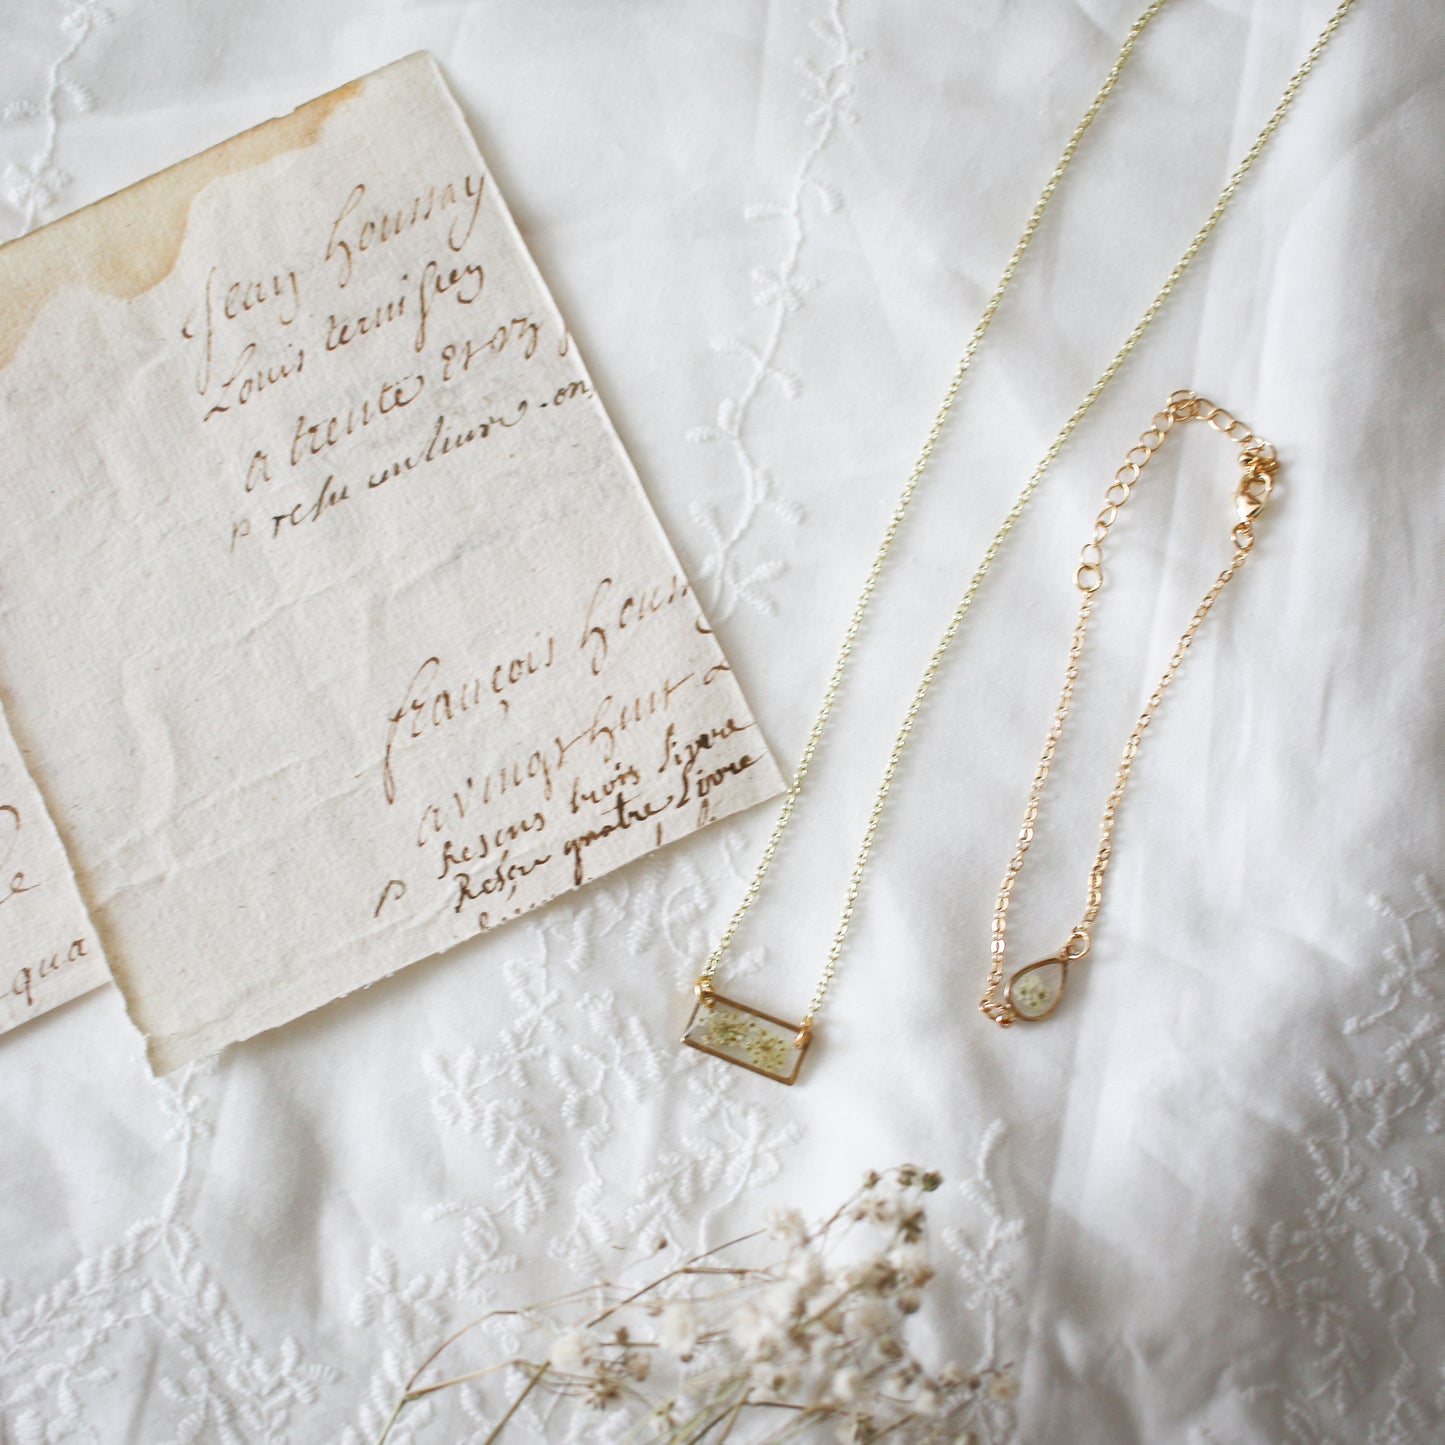 Jean houssay
Louis ternisien
a trente et oz
p resu un liuvre - on
françois hous
a vingt huit
Resens trois livre
p Reseu quatre Livre
qua